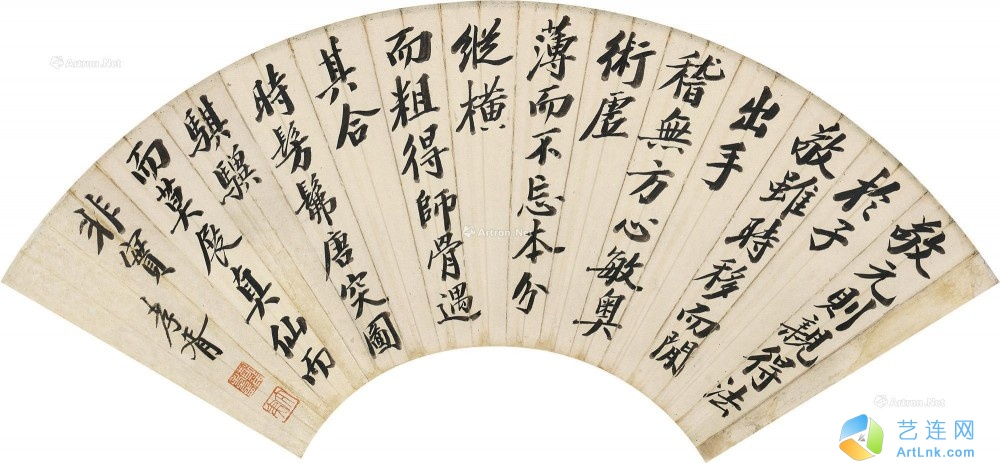 敬元則親得法
於子
敬雖時移而間
出手
稽無方心敏奥
術虛
薄而不忘本分
縱橫
而粗得師骨遇
其合
時髣髴唐突圖
騏驥
而莫展真仙而
非實 孝胥
Artron.Net
Artron.Net
Artron.Net
艺连网
ArtLnk.com